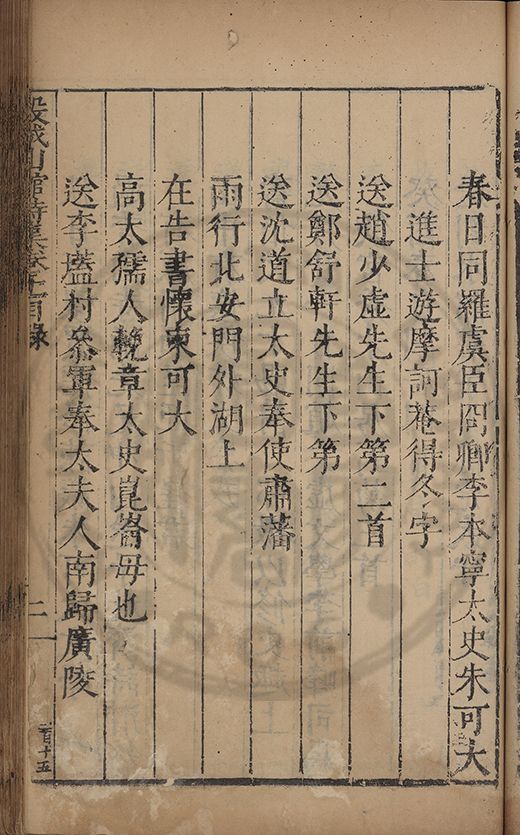 春日同羅虞臣冏卿李本寧太史朱可大
進士遊摩訶菴得冬字
送趙少虛先生下第二首
送鄭舒軒先生下第
送沈道立太史奉使肅藩
雨行北安門外湖上
在告書懷柬可大
高太孺人輓章太史崑崙母也
送李塩村叅軍奉太夫人南歸廣陵
穀城山館詩集卷十二目錄
二
二百十五